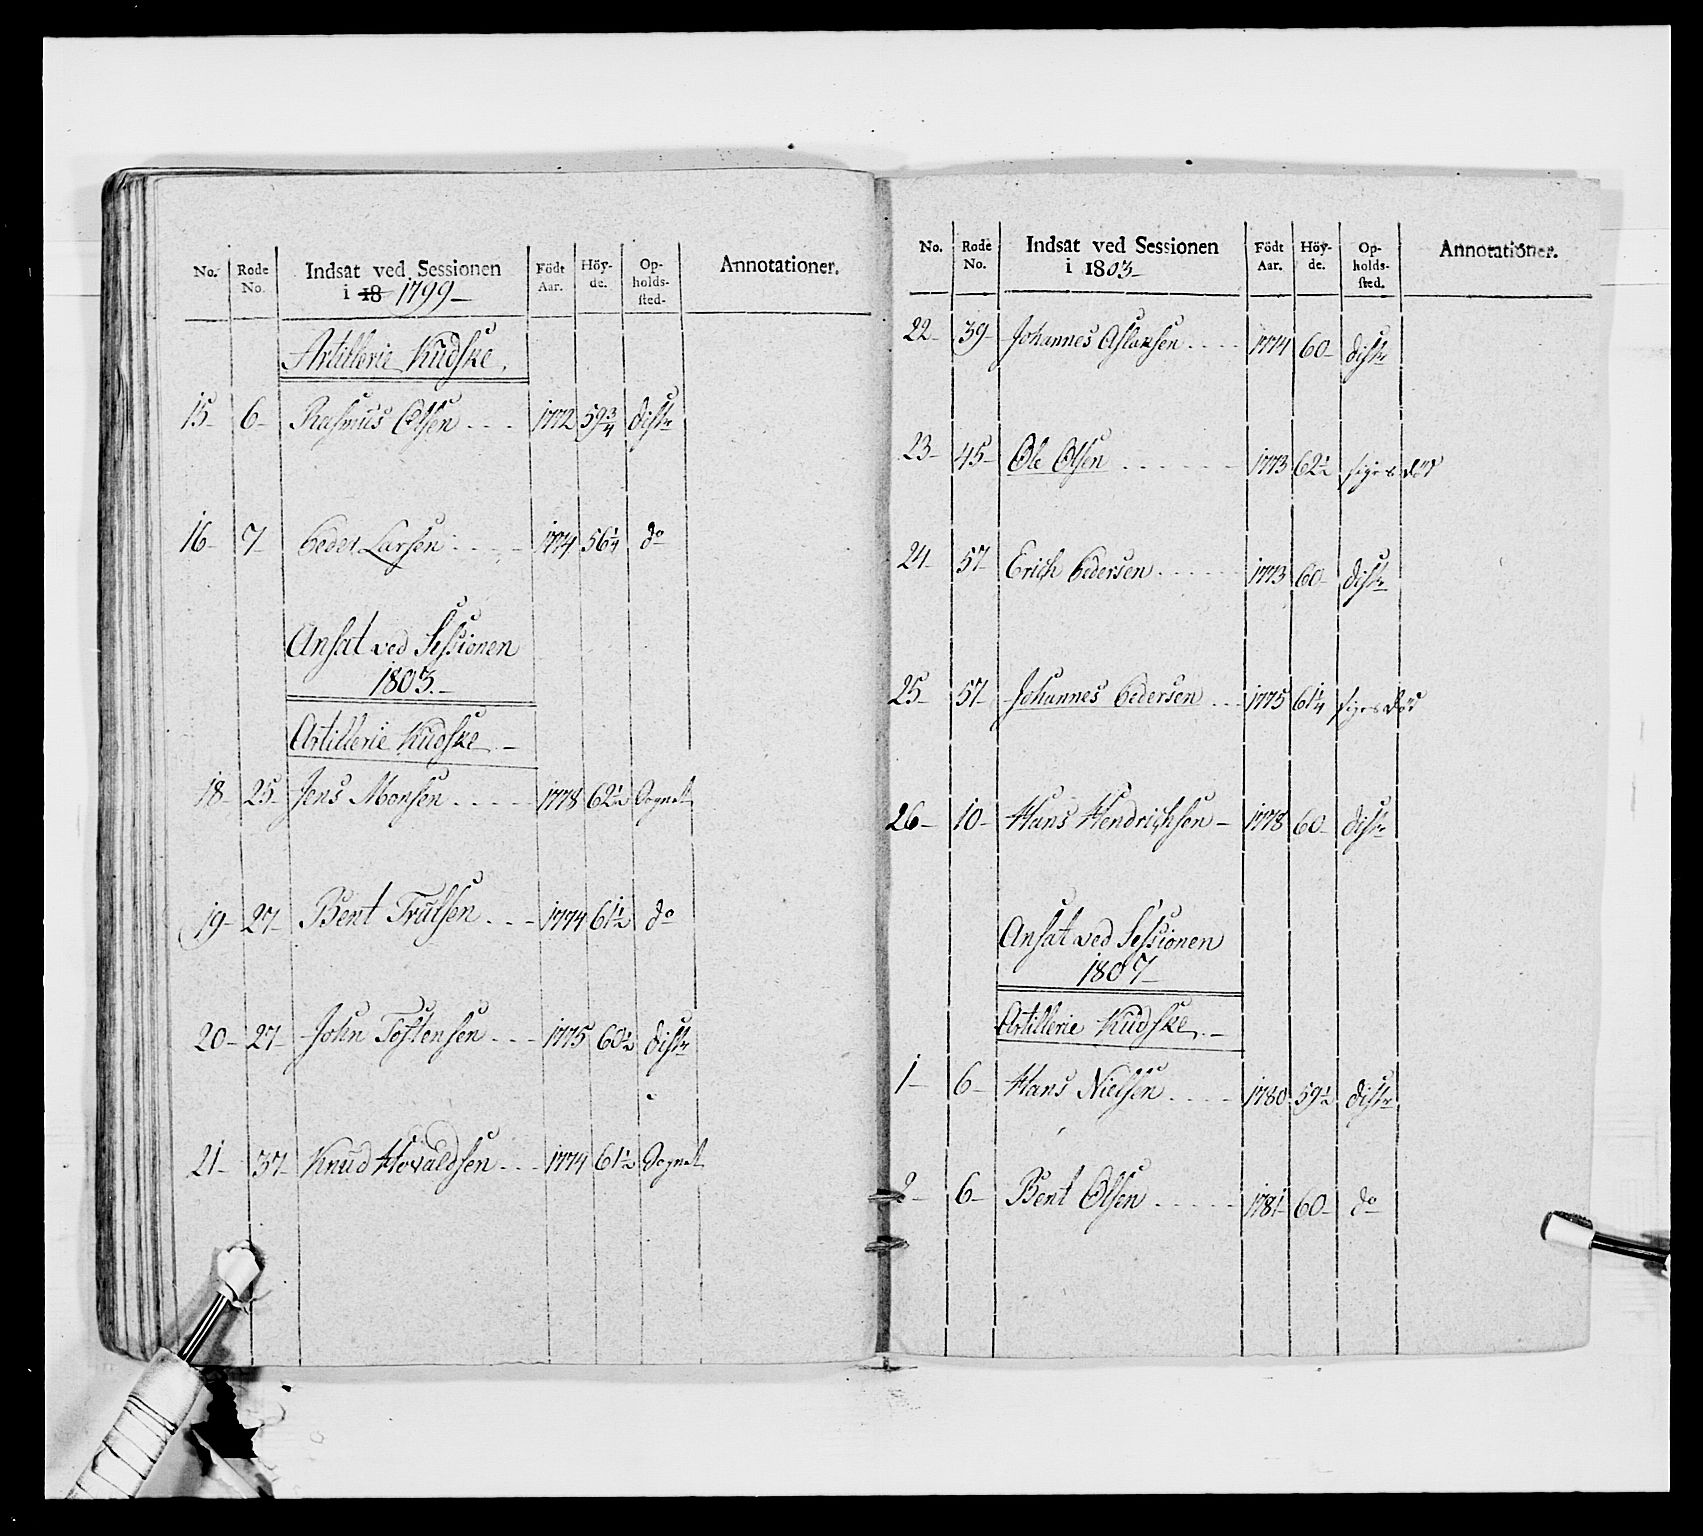 No. Rode No. Indsat ved Sessionen i 18 1799 Födt Aar. Höy-de. Op-holds-sted. Annotationer.
Artillerie Kudske
15 6 Rasmus Olsen 1772 59 3/4 distr
16 7 Peder Larsen 1774 56 1/4 do
Ansat ved Sessionen
1803.
Artillerie Kudske
18 25 Jens Monsen 1778 62 1/2 Sognet
19 27 Bent Trulsen 1774 61 1/2 do
20 27 John Tostensen 1775 60 1/2 distr
21 37 Knud Hovaldsen 1774 61 1/2 Sognet
No. Rode No. Indsat ved Sessionen i 1803 Födt Aar. Höy-de. Op-holds-sted. Annotationer.
22 39 Johannes Aslaksen 1774 60 distr
23 45 Ole Olsen 1773 62 1/2 siges död
24 57 Erich Pedersen 1773 60 distr
25 57 Johannes Pedersen 1775 61 1/4 siges död
26 10 Hans Hendrichsen 1778 60 distr
Ansat ved Sessionen
1807
Artillerie Kudske
1 6 Hans Nielsen 1780 59 1/2 distr
2 6 Bent Olsen 1781 60 do